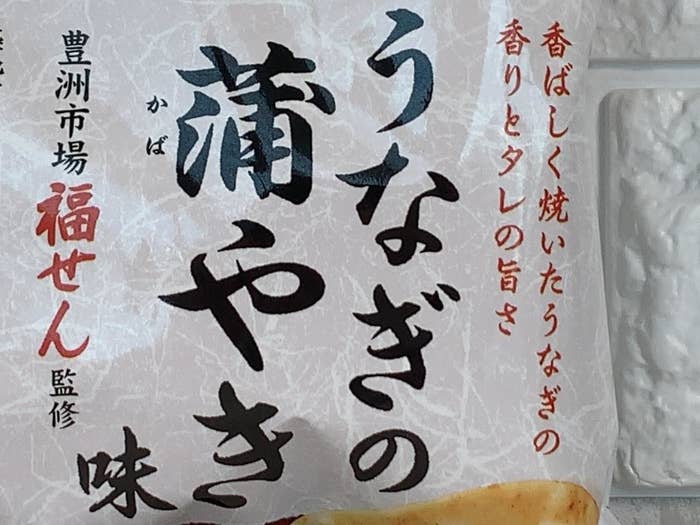 香ばしく焼いたうなぎの
香りとタレの旨さ
うなぎの
蒲やき
かば
味
豊洲市場福せん監修